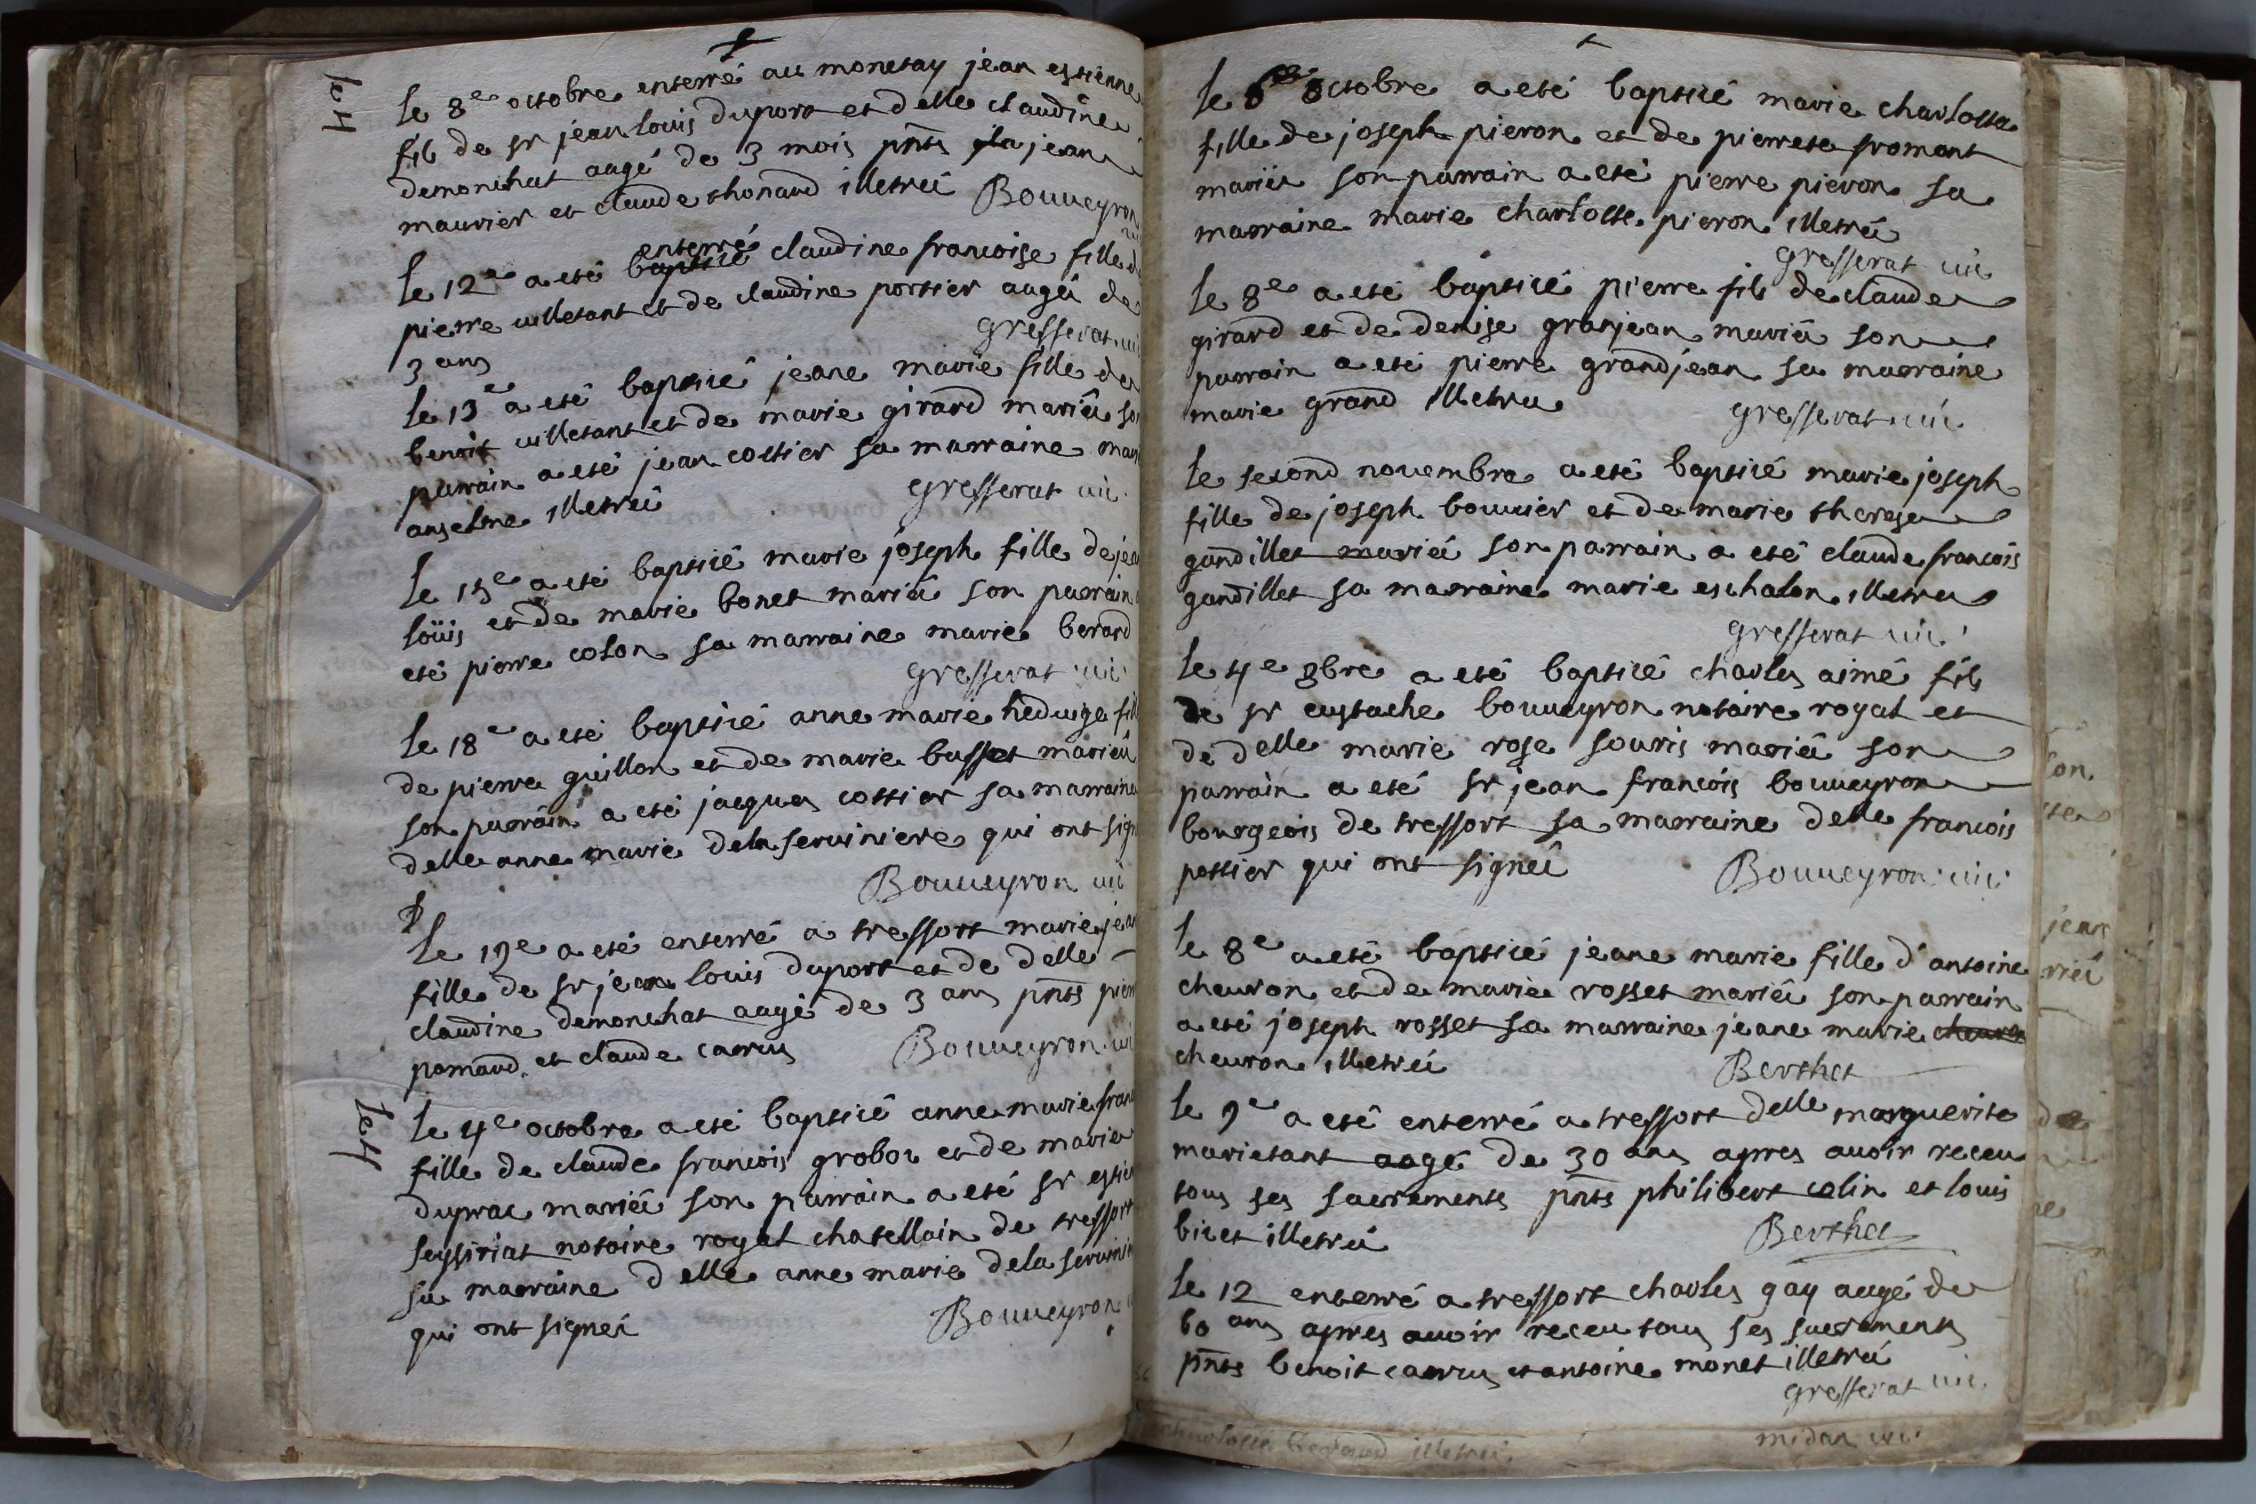 le 8e octobre enterré au monetay jean estienne
fils de sr jean louis duport et delle claudine
demonchat aagé de 3 mois pnts jean
maurier et claude thonard illetreé Bouveyron
le 12e a eté enterré claudine francoise fille de
pierre cuilletant et de claudine portier aageé de
3 ans gresserat vic
le 13e a eté bapticé jeane marie fille de
benoit cuilletant et de marie girard marieé son
parrain a eté jean cottier sa marraine marie
anselme illetreé gresserat vic
le 15e a eté bapticé marie joseph fille de jean
loüis et de marie bonet marieé son parrain a
eté pierre colon sa marraine marie berard
gresserat vic
le 18e a eté bapticé anne marie heduige fille
de pierre guillon et de marie busset marieé
son parrain a eté jacques cottier sa marraine
delle anne marie dela serviniere qui ont signé
Bouveyron vic
le 19e a eté enterré a tressort marie jeanne
fille de sr jean louis duport et de delle
claudine demonchat aagé de 3 ans pnts pierre
pomard et claude carrus Bouveyron vic
le 4
le 4e octobre a eté bapticé anne marie francoise
fille de claude francois groboz et de marie
duprac marieé son parrain a eté sr estienne
seyssiriat notaire royal chatellain de tressort
sa marraine delle anne marie dela serviniere
qui ont signeé Bouveyron
le 4
le 6e octobre a eté bapticé marie charlotte
fille de joseph pieron et de pierrete fromont
marieé son parrain a eté pierre pieron sa
marraine marie charlotte pieron illetreé
gresserat vic
le 8e a eté bapticé pierre fils de claude
girard et de denise granjean marieé son
parrain a eté pierre grandjean sa marraine
marie grand illetre gresserat vic
le second novembre a eté bapticé marie joseph
fille de joseph bouvier et de marie therese
gandillet marieé son parrain a eté claude francois
gandillet sa marraine marie eschalon illetre
gresserat vic
le 4e 9bre a eté bapticé charles aimé fils
de sr eustache bouveyron notaire royal et
de delle marie rose souris marieé son
parrain a eté sr jean francois bouveyron
bourgeois de tressort sa marraine delle francois
pottier qui ont signeé Bouveyron vic
le 8e a eté bapticé jeane marie fille d'antoine
chevron et de marie rosset marieé son parrain
a eté joseph rosset sa marraine jeane marie
chevron illetreé Berthet
le 9e a eté enterré a tressort delle marguerite
marietant aagé de 30 ans apres avoir receu
tous ses sacrements pnts philibert colin et louis
bicet illetreé Berthet
le 12 enterré a tressort charles gay aagé de
60 ans apres avoir receu tous ses sacrements
pnts benoit carrus et antoine monet illetreé
gresserat vic
charlotte berard illetreé midan vic